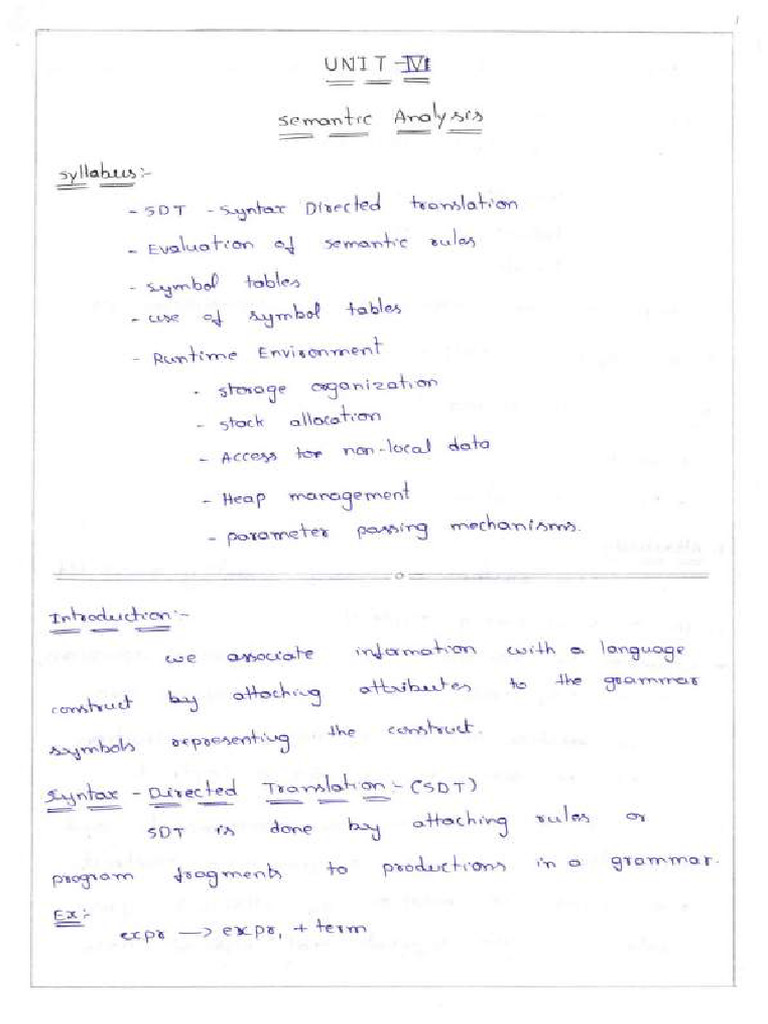 UNIT-VI
Semantic Analysis
Syllabus:-
- SDT - Syntax Directed translation
- Evaluation of semantic rules
- Symbol tables
- use of symbol tables
- Runtime Environment
- storage organization
- stack allocation
- Access to non-local data
- Heap management
- parameter passing mechanisms.
Introduction:-
we associate information with a language
construct by attaching attributes to the grammar
symbols representing the construct.
Syntax - Directed Translation:- (SDT)
SDT is done by attaching rules or
program fragments to productions in a grammar.
Ex:-
expr → expr₁ + term